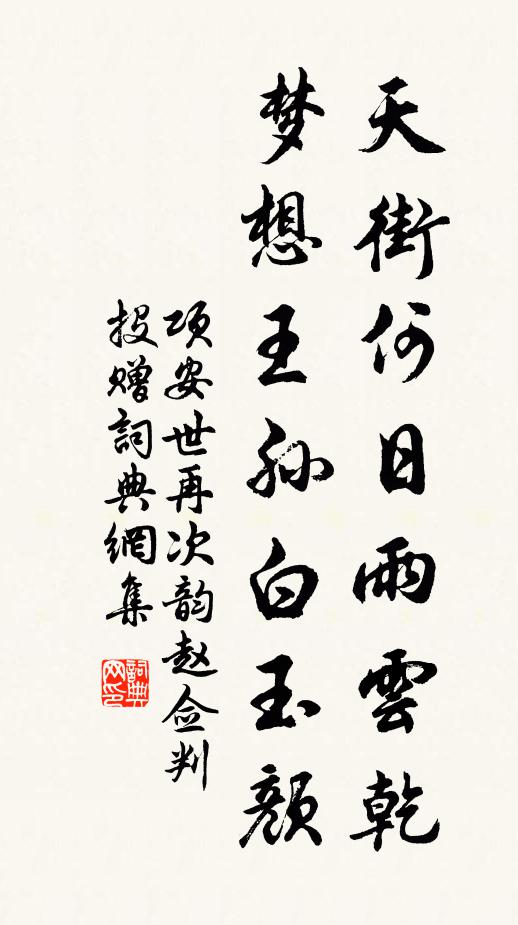 天街何日雨雲乾
梦想王孙白玉颜
项安世再次韵赵佥判
投赠詞典網集
詞典网印